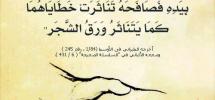 بِيَدِهِ فَصَافَحَهُ تَنَاثَرَتْ خَطَايَاهُمَا
كَمَا يَتَنَاثَرُ وَرَقُ الشَّجَرِ"
أخرجه الطبراني في الأوسط (184/1، رقم 245)
وصححه الألباني في "السلسلة الصحيحة" (6 / 431)